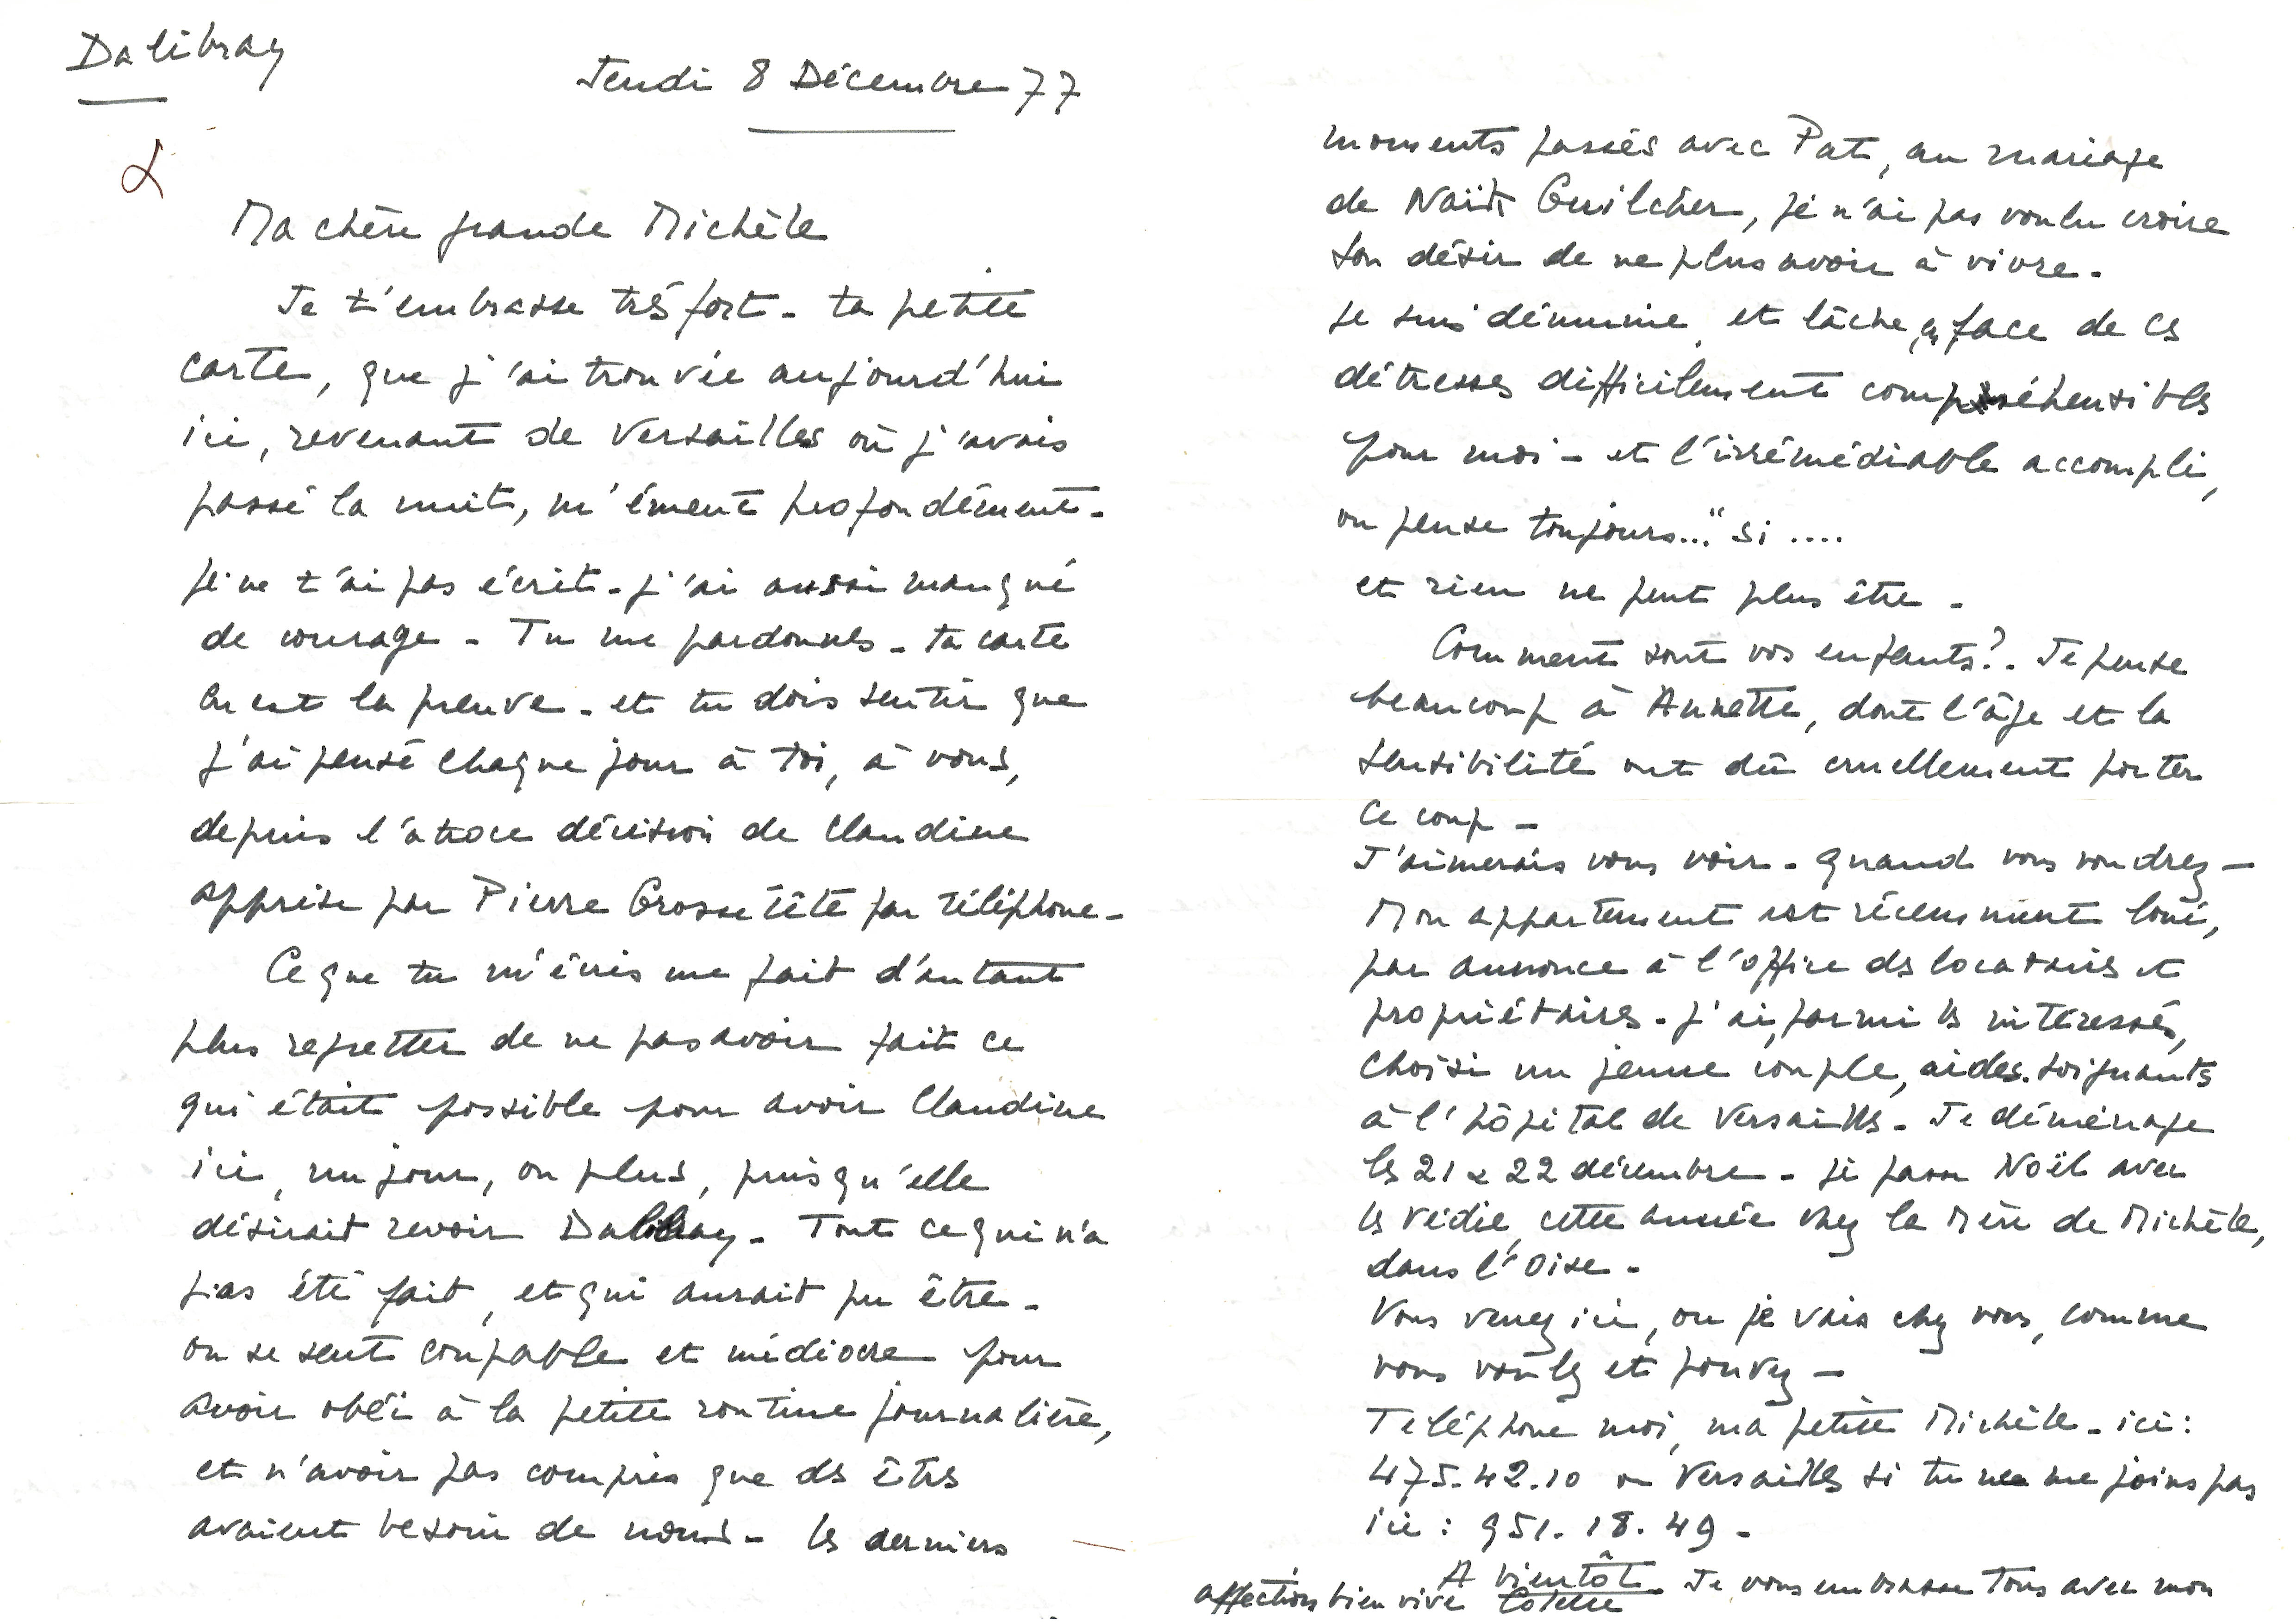 Dalibray
Jeudi 8 Décembre 77
Ma chère grande Michèle
Je t'embrasse très fort - ta petite
carte, que j'ai trouvée aujourd'hui
ici, revenant de Versailles où j'avais
passé la nuit, m'émeut profondément -
je ne t'ai pas écrit - j'ai aussi manqué
de courage - Tu me pardonnes - ta carte
en est la preuve - et tu dois sentir que
j'ai pensé chaque jour à toi, à vous,
depuis l'atroce décision de Claudine
apprise par Pierre Grossetête par téléphone -
Ce que tu m'écris me fait d'autant
plus regretter de ne pas avoir fait ce
qui était possible pour avoir Claudine
ici, un jour, ou plus, puisqu'elle
désirait revoir Dalibray - Tout ce qui n'a
pas été fait, et qui aurait pu être -
on se sent coupable et médiocre pour
avoir obéi à la petite routine journalière,
et n'avoir pas compris que des êtres
avaient besoin de nous - les derniers
moments passés avec Pat, au mariage
de Guilcher, je n'ai pas voulu croire
son désir de ne plus avoir à vivre -
je suis démunie et lâche, en face de ces
détresses difficilement compréhensibles
pour moi - et l'irrémédiable accompli,
on pense toujours..." si ....
et rien ne peut plus être -
Comment sont vos enfants ?. Je pense
beaucoup à Annette, dont l'âge et la
sensibilité ont dû cruellement porter
ce coup -
J'aimerais vous voir - quand vous voudrez -
Mon appartement est récemment loué,
par annonce à l'office des locataires et
propriétaires - j'ai, parmi les intéressés,
choisi un jeune couple, aides-soignants
à l'hôpital de Versailles - Je déménage
les 21 & 22 décembre - je passe Noël avec
les Védie, cette année chez la Mère de Michèle,
dans l'Oise -
Vous venez ici, ou je vais chez vous, comme
vous voulez et pouvez -
Téléphone moi, ma petite Michèle - ici :
475.42.10 ou Versailles si tu ne me joins pas
ici : 951.18.49 -
A bientôt - Je vous embrasse tous avec mon
affection bien vive